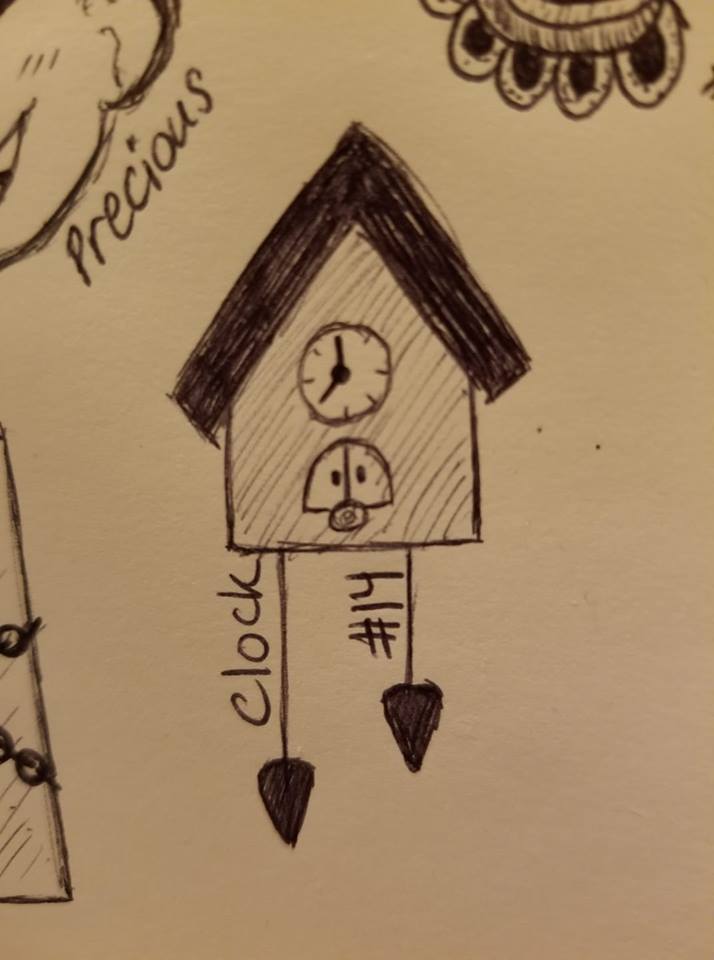 Precious
Clock
#14